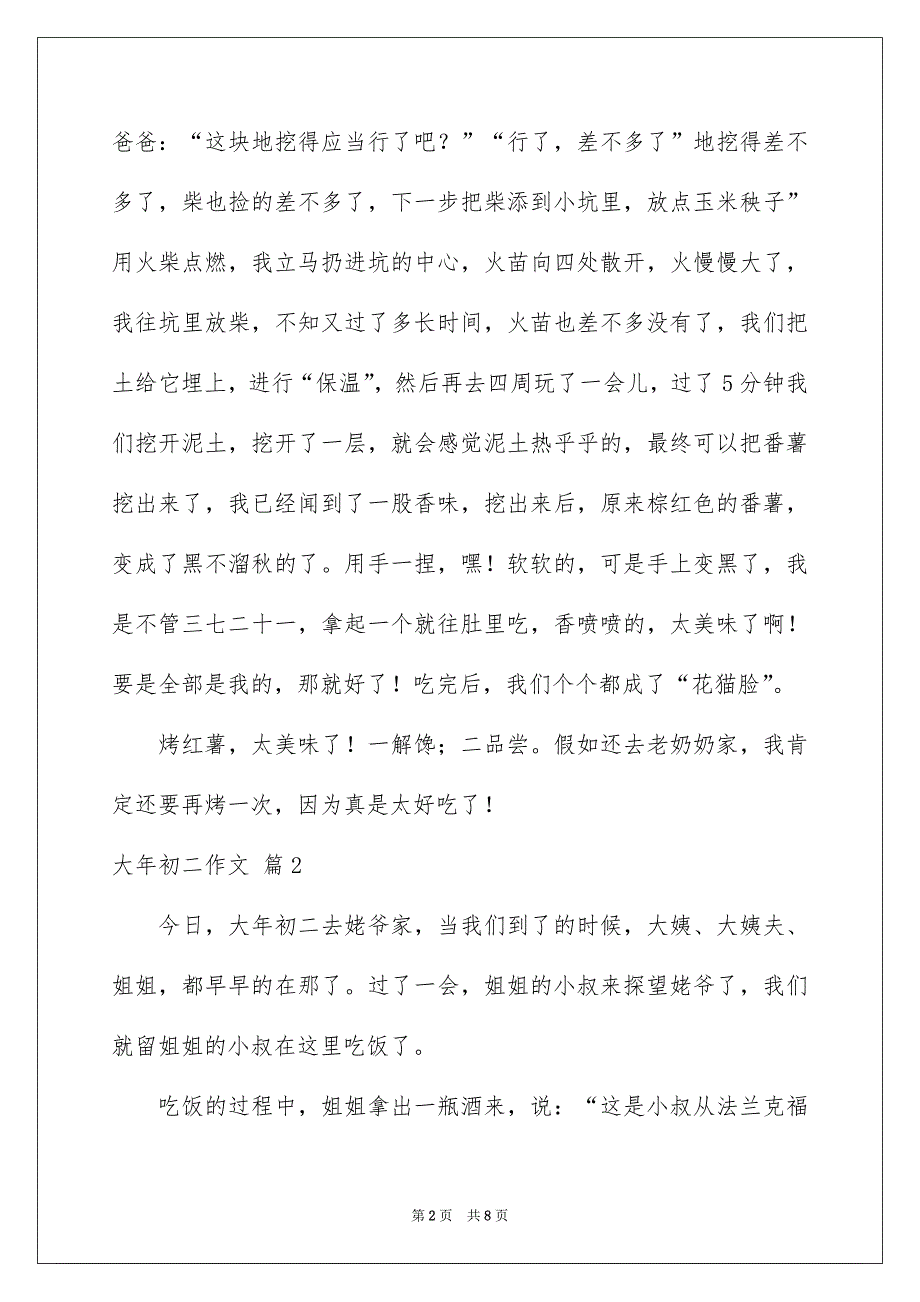 爸爸：“这块地挖得应当行了吧？”“行了，差不多了”地挖得差不
多了，柴也捡的差不多了，下一步把柴添到小坑里，放点玉米秧子”
用火柴点燃，我立马扔进坑的中心，火苗向四处散开，火慢慢大了，
我往坑里放柴，不知又过了多长时间，火苗也差不多没有了，我们把
土给它埋上，进行“保温”，然后再去四周玩了一会儿，过了5分钟我
们挖开泥土，挖开了一层，就会感觉泥土热乎乎的，最终可以把番薯
挖出来了，我已经闻到了一股香味，挖出来后，原来棕红色的番薯，
变成了黑不溜秋的了。用手一捏，嘿！软软的，可是手上变黑了，我
是不管三七二十一，拿起一个就往肚里吃，香喷喷的，太美味了啊！
要是全部是我的，那就好了！吃完后，我们个个都成了“花猫脸”。
烤红薯，太美味了！一解馋；二品尝。假如还去老奶奶家，我肯
定还要再烤一次，因为真是太好吃了！
大年初二作文 篇2
今日，大年初二去姥爷家，当我们到了的时候，大姨、大姨夫、
姐姐，都早早的在那了。过了一会，姐姐的小叔来探望姥爷了，我们
就留姐姐的小叔在这里吃饭了。
吃饭的过程中，姐姐拿出一瓶酒来，说：“这是小叔从法兰克福
第2页 共8页